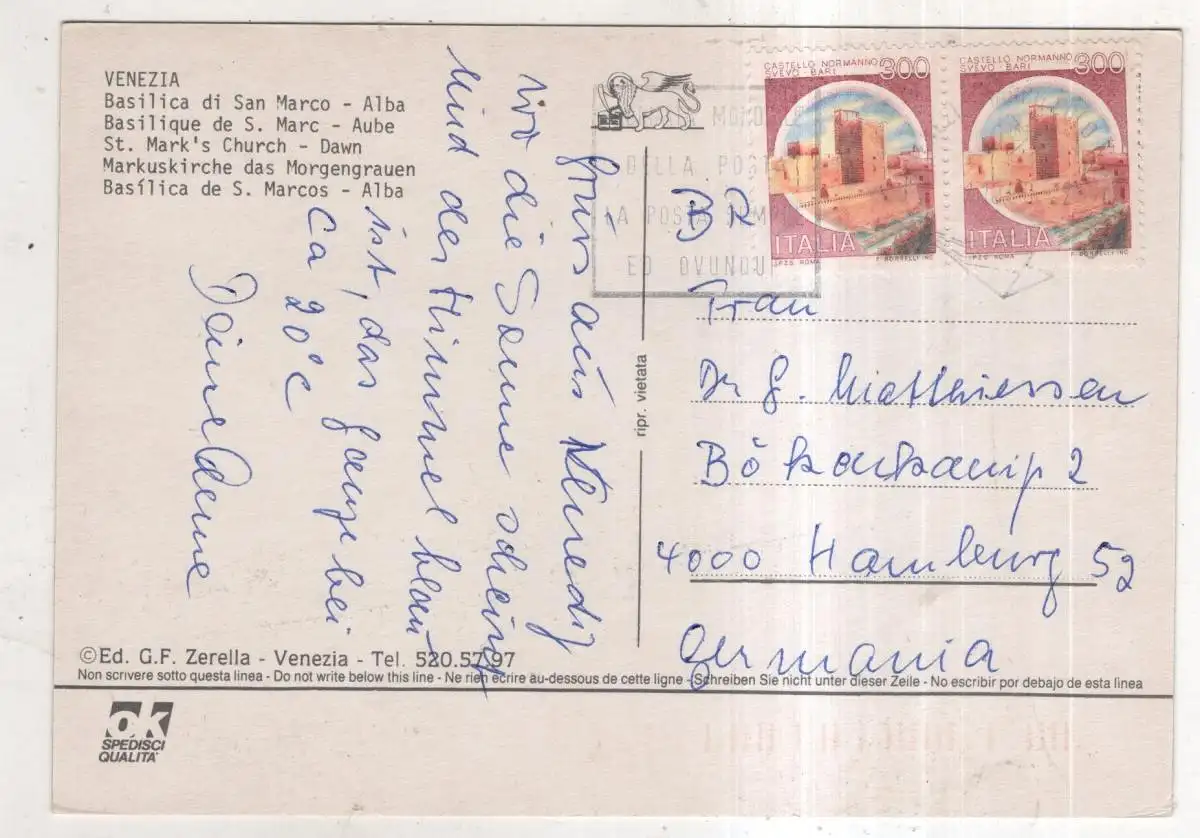 VENEZIA
Basilica di San Marco - Alba
Basilique de S. Marc - Aube
St. Mark's Church - Dawn
Markuskirche das Morgengrauen
Basílica de S. Marcos - Alba
Gruss aus Venedig
wo die Sonne scheint
und der Himmel blau
ist, das ganze bei
ca 20°C
Deine
CASTELLO NORMANNO
SVEVO - BARI
300
ITALIA
I.P.Z.S. ROMA
CASTELLO NORMANNO
SVEVO - BARI
300
ITALIA
I.P.Z.S. ROMA
DELLA POSTA
LA POSTA
ED OVUNQU
Frau
Dr G. Matthiessen
2
Hamburg 52
Germania
ripr. vietata
©Ed. G.F. Zerella - Venezia - Tel. 520.57.97
Non scrivere sotto questa linea - Do not write below this line - Ne rien écrire au-dessous de cette ligne - Schreiben Sie nicht unter dieser Zeile - No escribir por debajo de esta linea
ok
SPEDISCI
QUALITA'